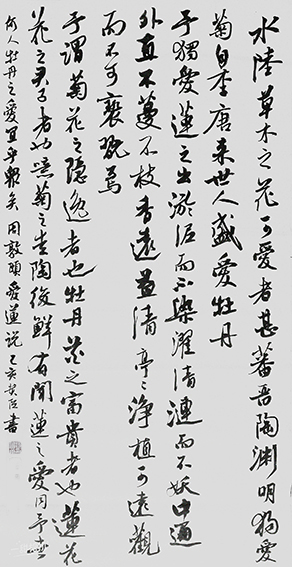 水陸草木之花可愛者甚蕃晉陶淵明獨愛
菊自李唐来世人盛愛牡丹
予獨愛蓮之出淤泥而不染濯清漣而不妖中通
外直不蔓不枝香遠益清亭〻淨植可遠觀
而不可褻翫焉
予謂菊花之隱逸者也牡丹花之富貴者也蓮花
花之君子者也噫菊之愛陶後鮮有聞蓮之愛同予
何人牡丹之愛宜乎衆矣 周敦頤愛蓮説 乙亥 書